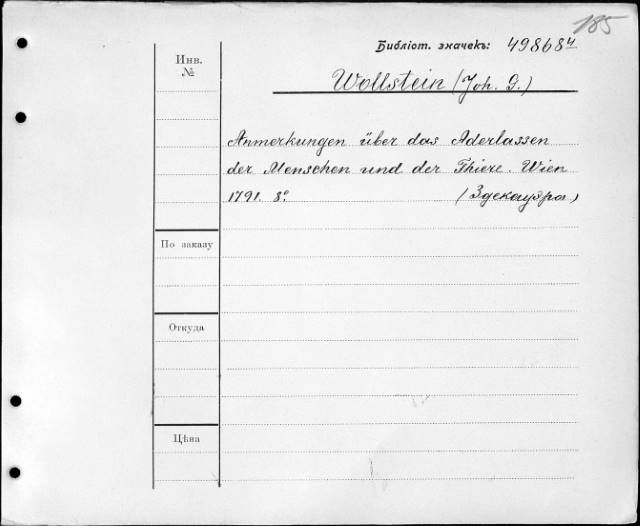 185
Библіот. значекъ: 49868 4
Инв.
№
Wollstein (Joh. G.)
Anmerkungen über das Aderlassen
der Menschen und der Thiere. Wien
1791. 8º. (Здекауэра)
По заказу
Откуда
Цѣна